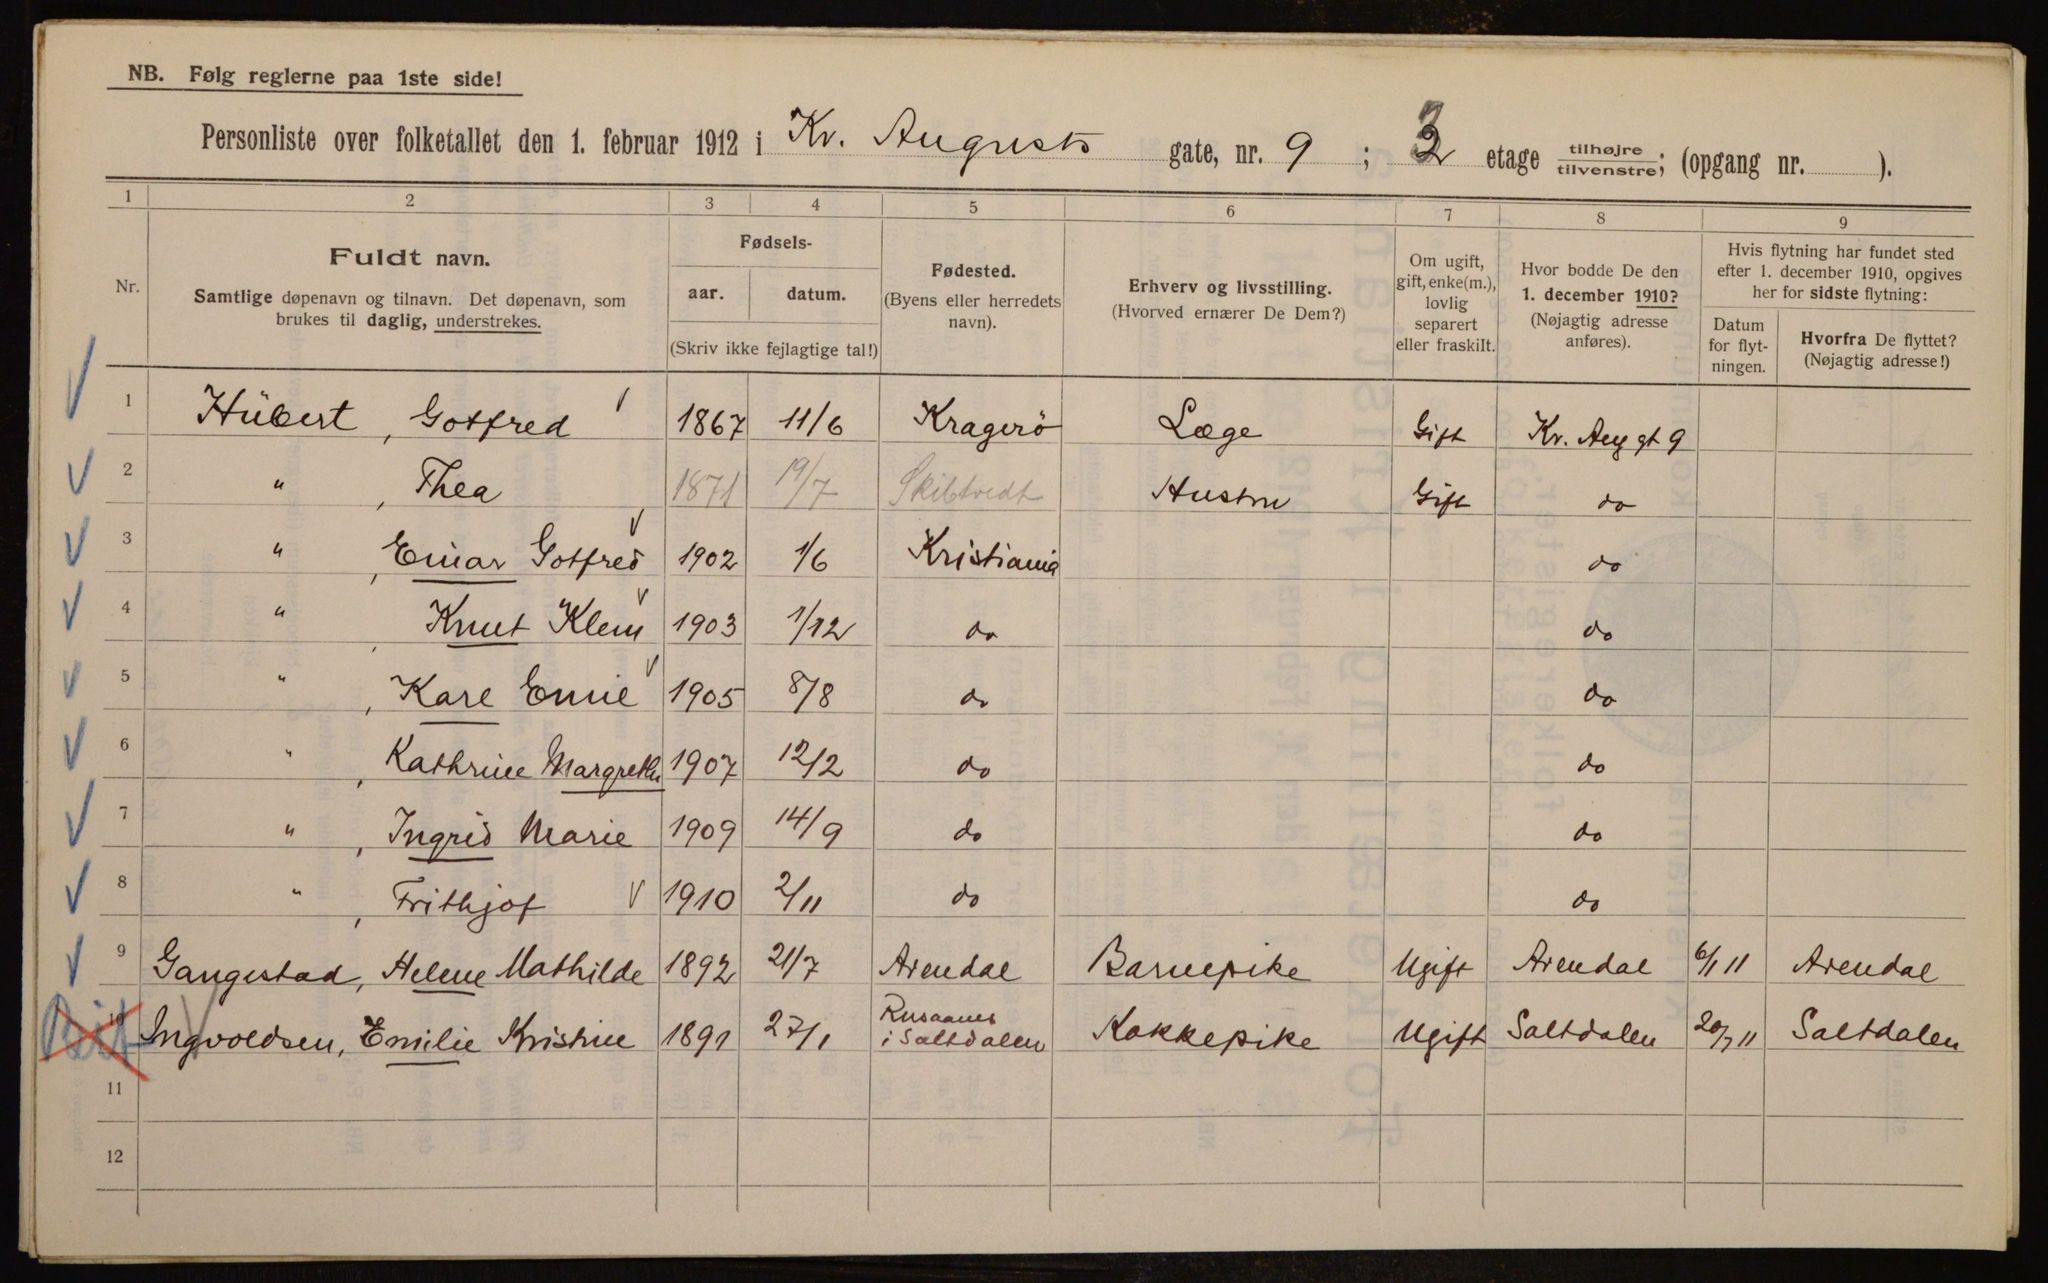 NB. Følg reglerne paa 1ste side!
Personliste over folketallet den 1. februar 1912 i Kr. Augusts gate, nr. 9 ; 3 etage tilhøjre/tilvenstre; (opgang nr. ).
1 2 3 4 5 6 7 8 9
Nr.
Fuldt navn.
Samtlige døpenavn og tilnavn. Det døpenavn, som
brukes til daglig, understrekes.
Fødsels-
aar. datum.
(Skriv ikke fejlagtige tal!)
Fødested.
(Byens eller herredets
navn).
Erhverv og livsstilling.
(Hvorved ernærer De Dem?)
Om ugift,
gift, enke(m.),
lovlig
separert
eller fraskilt.
Hvor bodde De den
1. december 1910?
(Nøjagtig adresse
anføres).
Hvis flytning har fundet sted
efter 1. december 1910, opgives
her for sidste flytning:
Datum
for flyt-
ningen.
Hvorfra De flyttet?
(Nøjagtig adresse!)
1 Hübert, Gotfred 1867 11/6 Kragerö Læge Gift Kr. Aug gt 9
2 " , Thea 1871 19/7 Skibtvedt Hustru Gift do
3 " , Einar Gotfred 1902 1/6 Kristiania do
4 " , Knut Klem 1903 1/12 do do
5 " , Kare Emil 1905 8/8 do do
6 " , Kathrine Margrethe 1907 12/2 do do
7 " , Ingrid Marie 1909 14/9 do do
8 " , Frithjof 1910 2/11 do do
9 Gangestad, Helene Mathilde 1892 21/7 Arendal Barnepike Ugift Arendal 6/1 11 Arendal
10 Ingvoldsen, Emilie Kristine 1891 27/1 Rusaanes i Saltdalen Kokkepike Ugift Saltdalen 20/7 11 Saltdalen
11
12